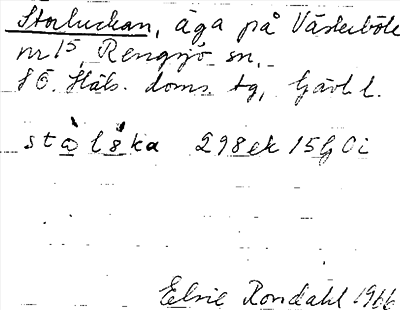 Storluckan, äga på Västerböle
nr 1⁵, Rengsjö sn,
S Ö. Häls. doms. tg, Gävl. l.
298 ek 15 G 0 i
Elsie Rondahl 1966